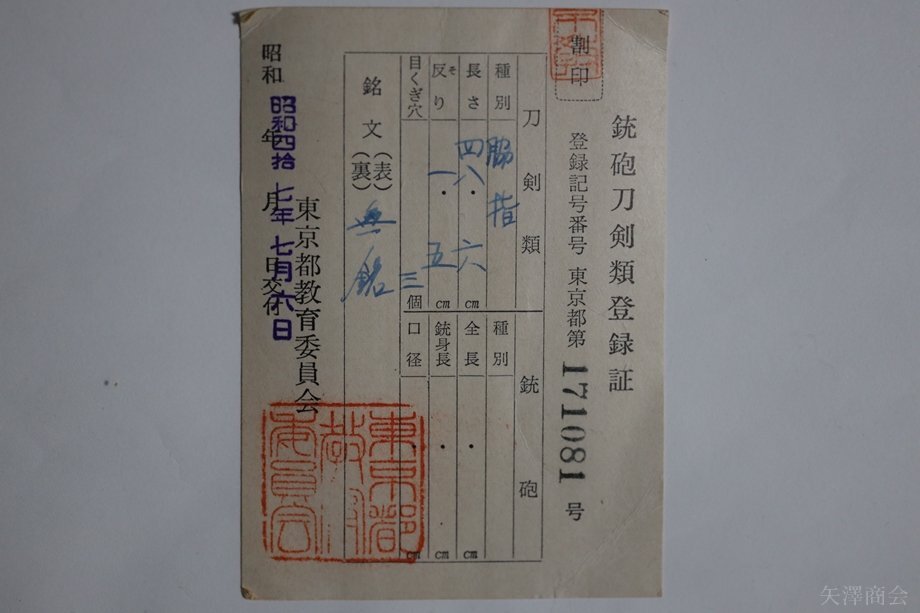 銃砲刀剣類登録証
割印
登録記号番号 東京都第171081号
刀剣類
種別 脇指
長さ 四八・六cm
反り そ 一・五cm
目くぎ穴 三個
銘文(表)(裏) 無銘
銃砲
種別
全長 ・ cm
銃身長 ・ cm
口径 ・ cm
東京都教育委員会
昭和 年 月 日交付
昭和四拾七年七月六日
東京都教育委員会
矢澤商会